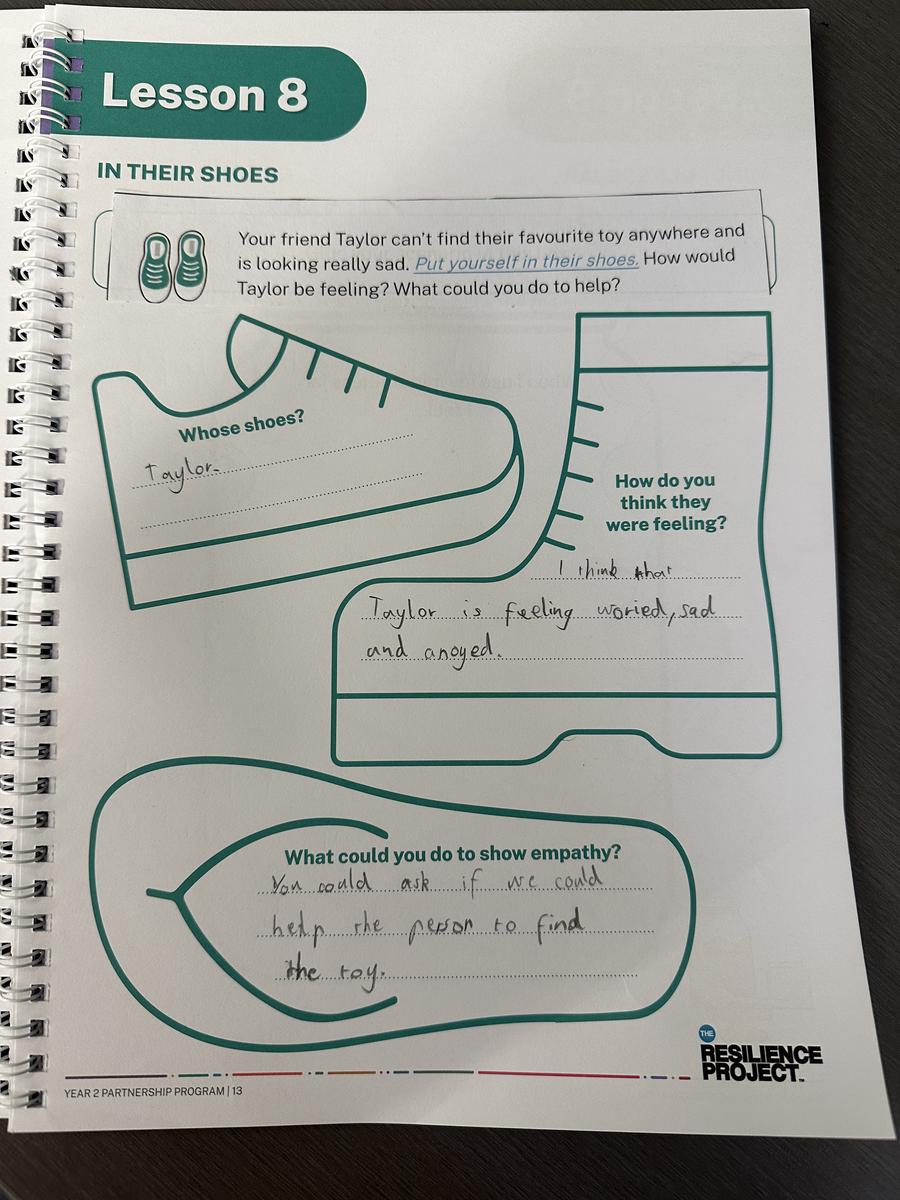 Lesson 8
IN THEIR SHOES
Your friend Taylor can't find their favourite toy anywhere and
is looking really sad. Put yourself in their shoes. How would
Taylor be feeling? What could you do to help?
Whose shoes?
Taylor.
How do you
think they
were feeling?
I think that
Taylor is feeling woried, sad
and anoyed.
What could you do to show empathy?
You could ask if we could
help the person to find
the toy.
THE
RESILIENCE
PROJECT™
YEAR 2 PARTNERSHIP PROGRAM | 13